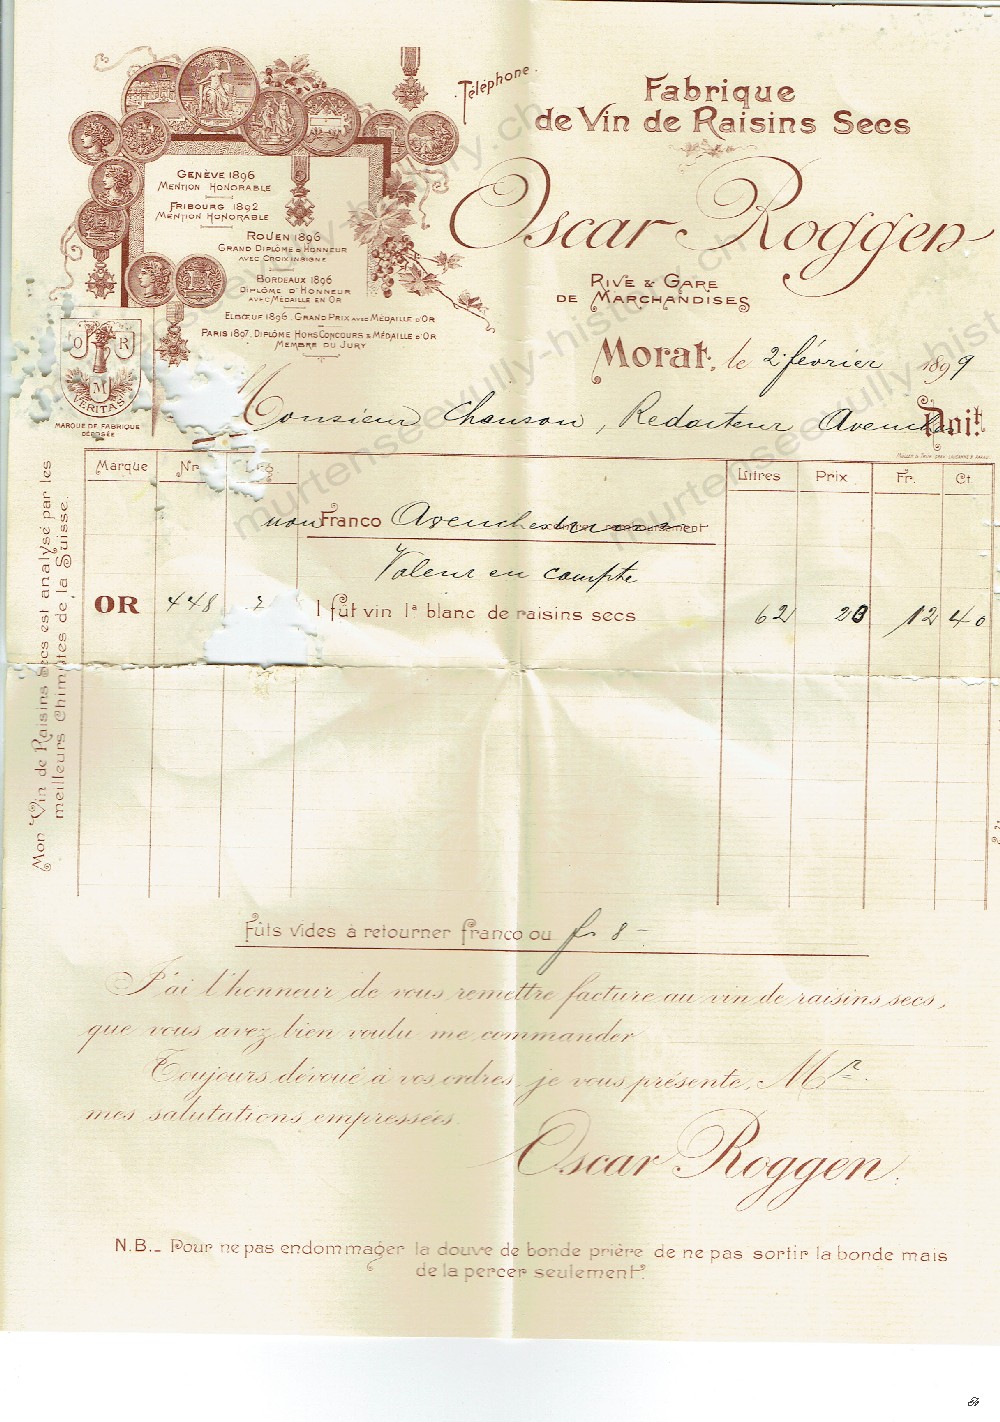 Téléphone.
Fabrique
de Vin de Raisins Secs
Oscar Roggen
Rive & Gare
de Marchandises
Morat, le 2 février 1899
Genève 1896
Mention Honorable
Fribourg 1892
Mention Honorable
Rouen 1896
Grand Diplôme d'Honneur
avec Croix insigne
Bordeaux 1896
Diplôme d'Honneur
avec Médaille en Or
Elboeuf 1896. Grand Prix avec Médaille d'Or
Paris 1897. Diplôme Hors Concours & Médaille d'Or
Membre du Jury
O R
M
VERITAS
Marque de Fabrique
déposée
Monsieur Chanson, Redacteur Avenches Doit
Marque Nr. Litres Prix Fr. Ct
non Franco Avenches
Valeur en compte
OR 448 1 fût vin 1a blanc de raisins secs 62 20 12 40
Mon Vin de Raisins Secs est analysé par les
meilleurs Chimistes de la Suisse.
Fûts vides à retourner franco ou fr 8 -
J'ai l'honneur de vous remettre facture au vin de raisins secs,
que vous avez bien voulu me commander
Toujours dévoué à vos ordres, je vous présente, Mr.
mes salutations empressées.
Oscar Roggen.
N.B._ Pour ne pas endommager la douve de bonde prière de ne pas sortir la bonde mais
de la percer seulement.
murtenseevully-history.ch
murtenseevully-history.ch